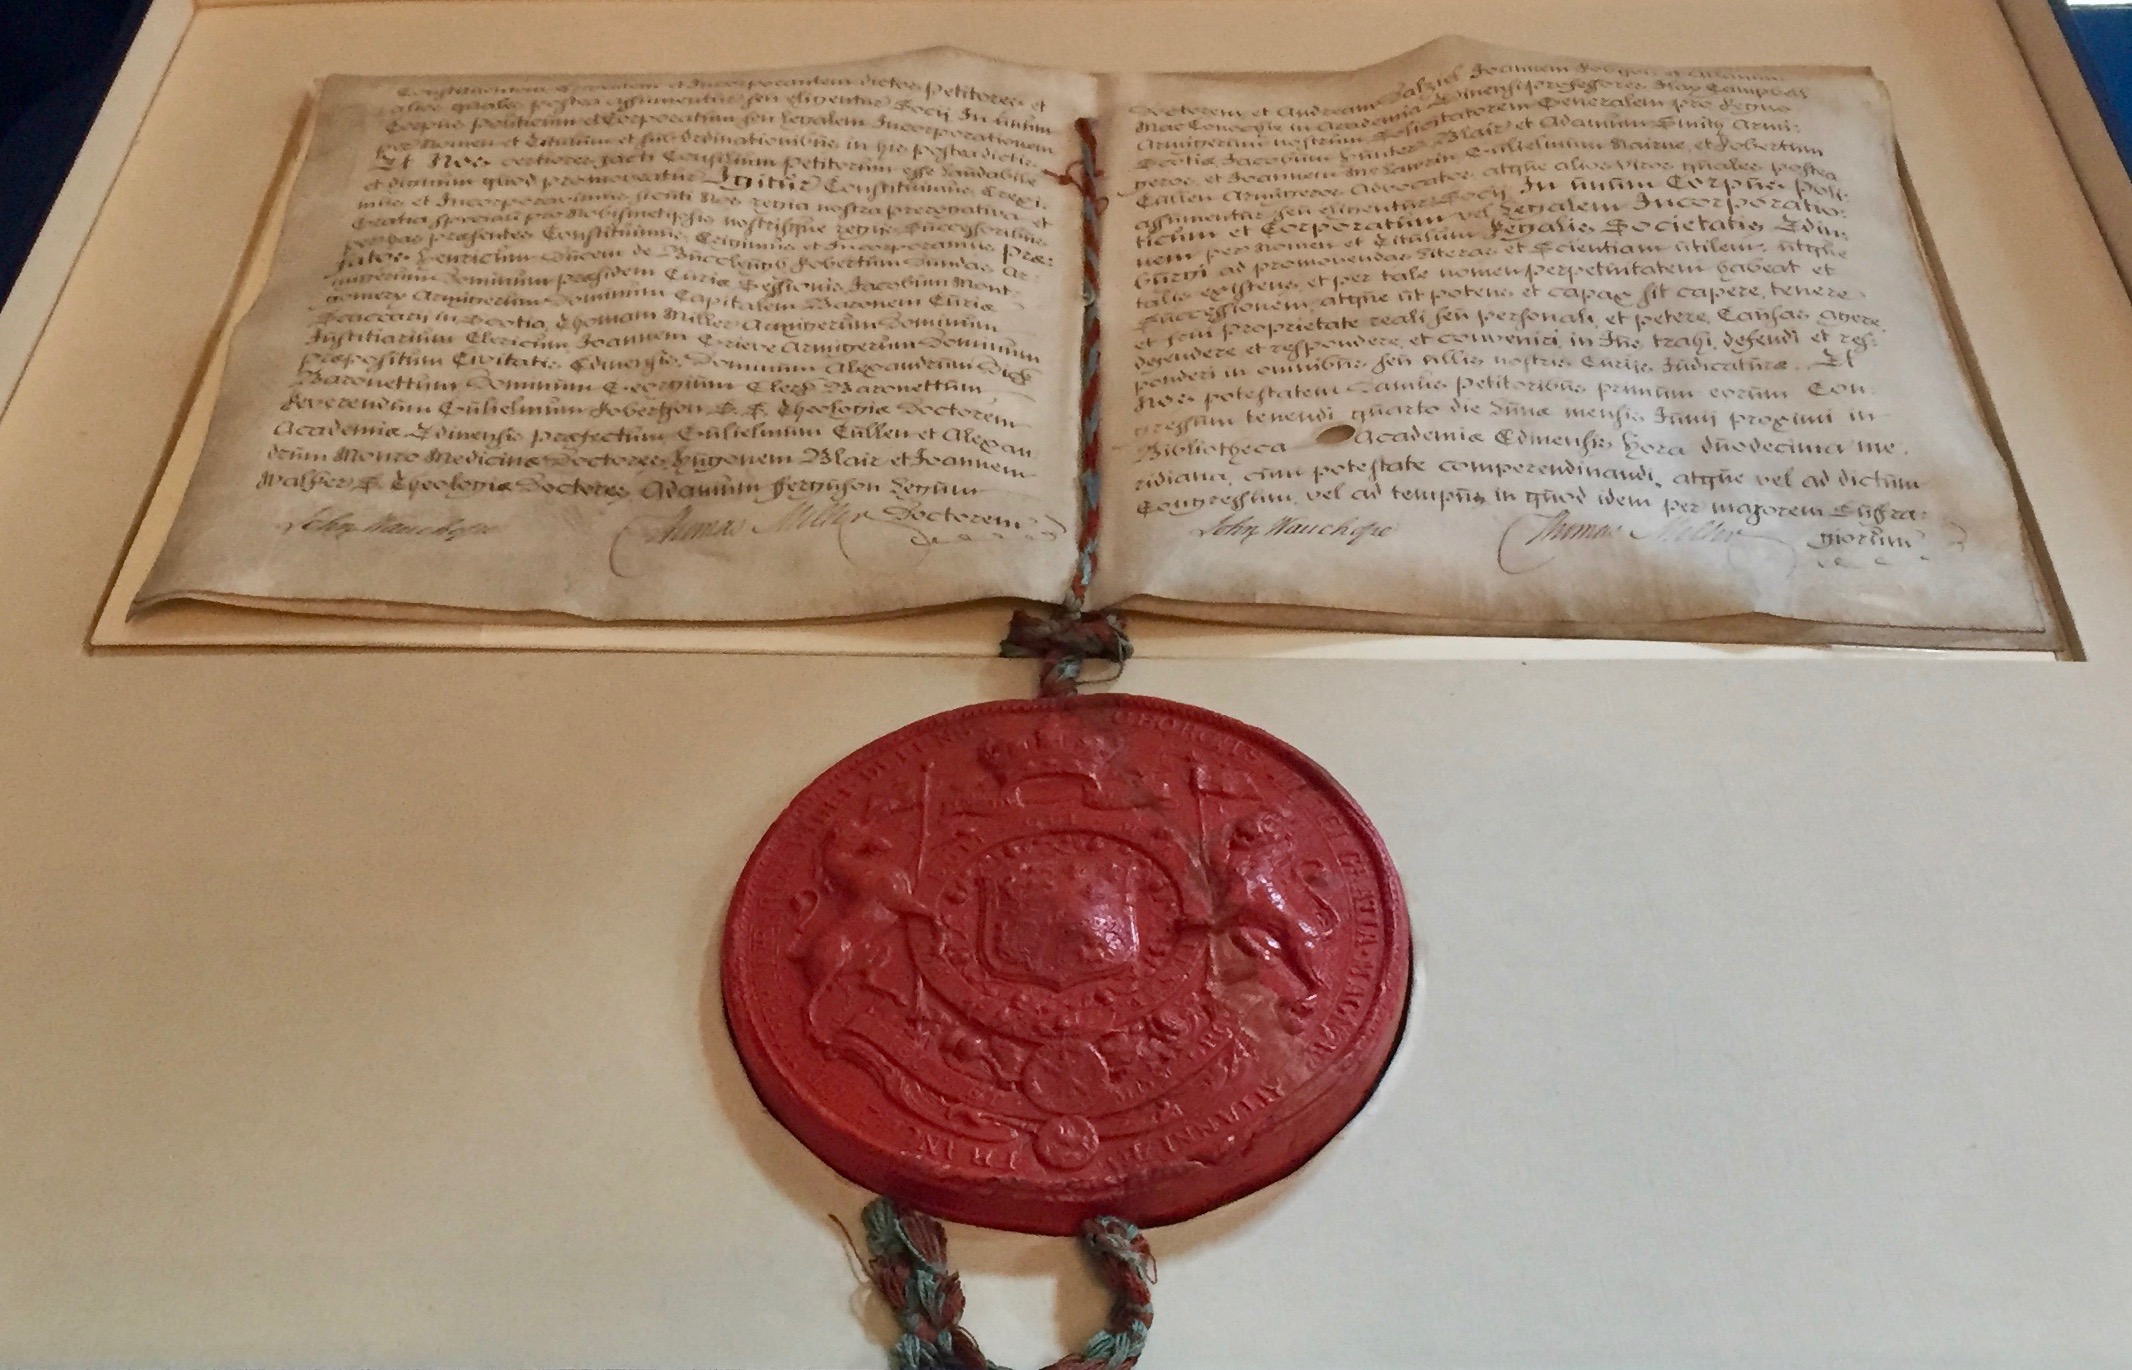 Constituentem Creantem et Incorporantem dictos Petitores et
alios quales postea assumentur seu eligentur Socij In unum
Corpus Politicum et Corporatum seu Legalem Incorporationem
per Nomen et Titulum et sub Ordinationibus in his postea dictis
Et Nos certiores facti Consilium Petitorum esse laudabile
et dignum quod promoveatur Igitur Constituimus Eregi-
mus et Incorporavimus sicuti Nos regia nostra prerogativa et
Gratia speciali pro Nobismetipsis nostrisque regijs Successoribus
per has præsentes Constituimus, Erigimus et Incorporamus Præ-
fatos Henricum Ducem de Buccleugh Robertum Dundas Ar-
migerum Dominum Præsidem Curiæ Sessionis Jacobum Mont-
gomery Armigerum Dominum Capitalem Baronem Curiæ
Scaccarij in Scotia, Thomam Miller Armigerum Dominum
Justitiarium Clericum Joannem Grieve Armigerum Dominum
Præpositum Civitatis Edinensis, Dominum Alexandrum Dick
Baronettum Dominum Georgium Clerk Baronettum
Reverendum Gulielmum Robertson S. S. Theologiæ Doctorem
Academiæ Edinensis Præfectum Gulielmum Cullen et Alexan
drum Monro Medicinæ Doctores, Hugonem Blair et Joannem
Walker S. Theologiæ Doctores Adamum Ferguson Legum
Doctorem
John Wauchope Thomas Miller
Doctorem et Andream Dalziel Joannem Robison et Allanum
MacConochie in Academia Edinensi professores Ilay Campbell
Armigerum nostrum Solicitatorem Generalem pro Regno
Scotiæ Jacobum Hunter Blair et Adamum Smith Armi-
geros, et Joannem McLaurin Gulielmum Nairne, et Robertum
Cullen Armigeros Advocatos, atque alios Viros quales postea
assumentur seu eligentur Socij In unum Corpus Poli-
ticum et Corporatum vel Legalem Incorporatio-
nem per Nomen et Titulum Regalis Societatis Edin-
burgi ad promovendas literas et Scientiam utilem, utque
talis existens, et per tale nomen perpetuitatem habeat et
Successionem, atque ut potens et capax sit capere, tenere
et frui proprietate reali seu personali, et petere, Causas agere
defendere et respondere, et conveniri, in Jus trahi, defendi et res-
ponderi in omnibus seu ullis nostris Curijs Judicaturæ. Et
Nos potestatem Damus Petitoribus primum eorum Con-
gressum tenendi quarto die Lunæ mensis Junij proximi in
Bibliotheca Academiæ Edinensis hora duodecima me-
ridiana, cum potestate comperendinandi, atque vel ad dictum
Congressum, vel ad tempus in quod idem per majorem Suffra-
giorum
John Wauchope Thomas Miller
GEORGIVS DEI GRATIA MAGNAE BRITANNIAE FRANC